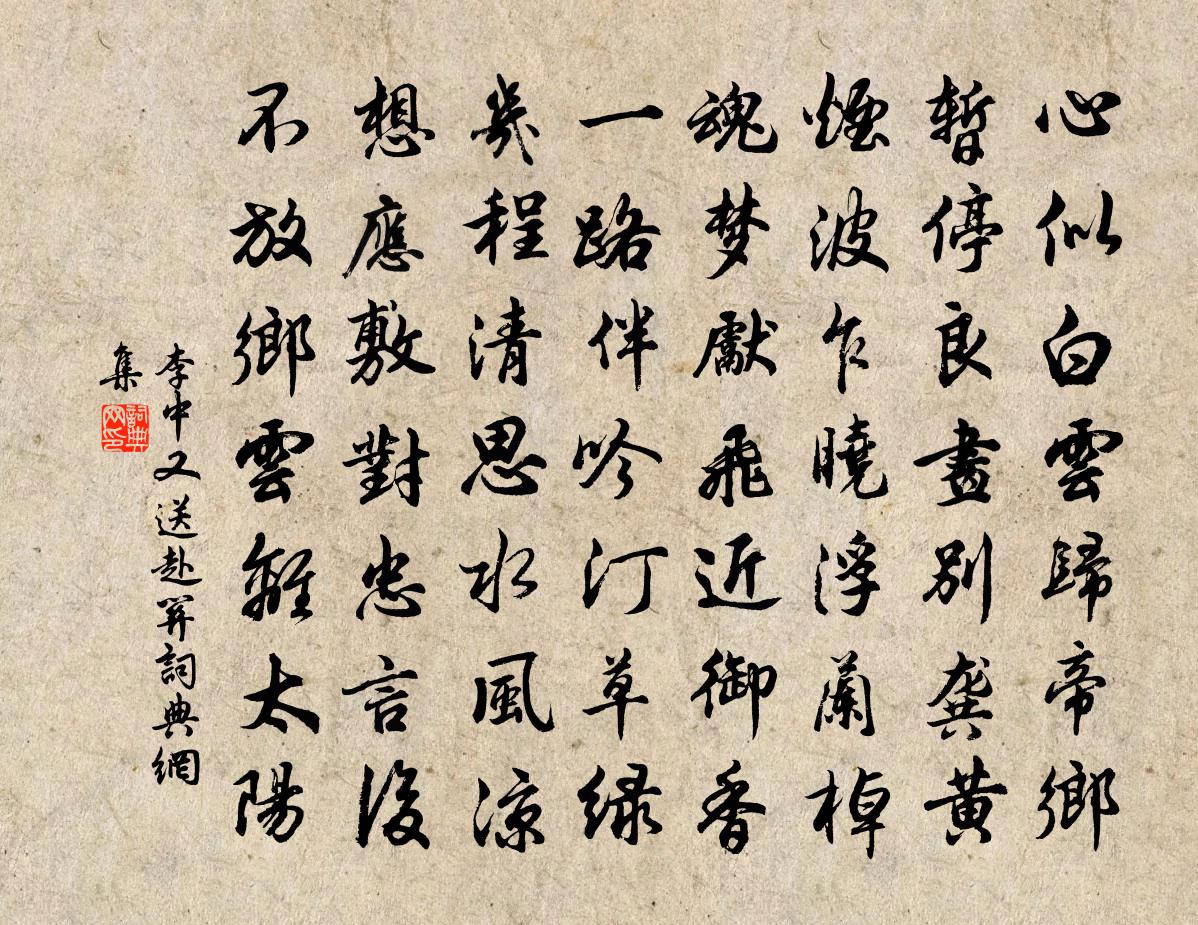 心似白雲歸帝鄉
暫停良畫別龔黃
煙波乍曉浮蘭棹
魂梦獻飛近御香
一路伴吟汀草绿
幾程清思水風涼
想應敷對忠言後
不放鄉雲離太陽
李中又送赴關詞典網
集
詞典网印